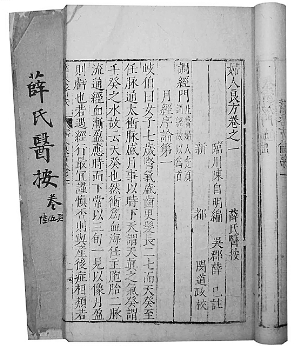 婦人良方卷之一 薛氏醫按
臨川陳自明編 吳郡薛己註
新都 閔道政校
調經門
月經序論第一
岐伯曰女子七歲腎氣盛齒更髮長二七而天癸至
任脈通太衝脈盛月事以時下天謂天真之氣癸謂
壬癸之水故云天癸也然衝為血海任主胞胎二脈
流通經血漸盈應時而下常以三旬一見以像月盈
則虧也若遇經行最宜謹慎否則與產後症相類若
薛氏醫按 卷